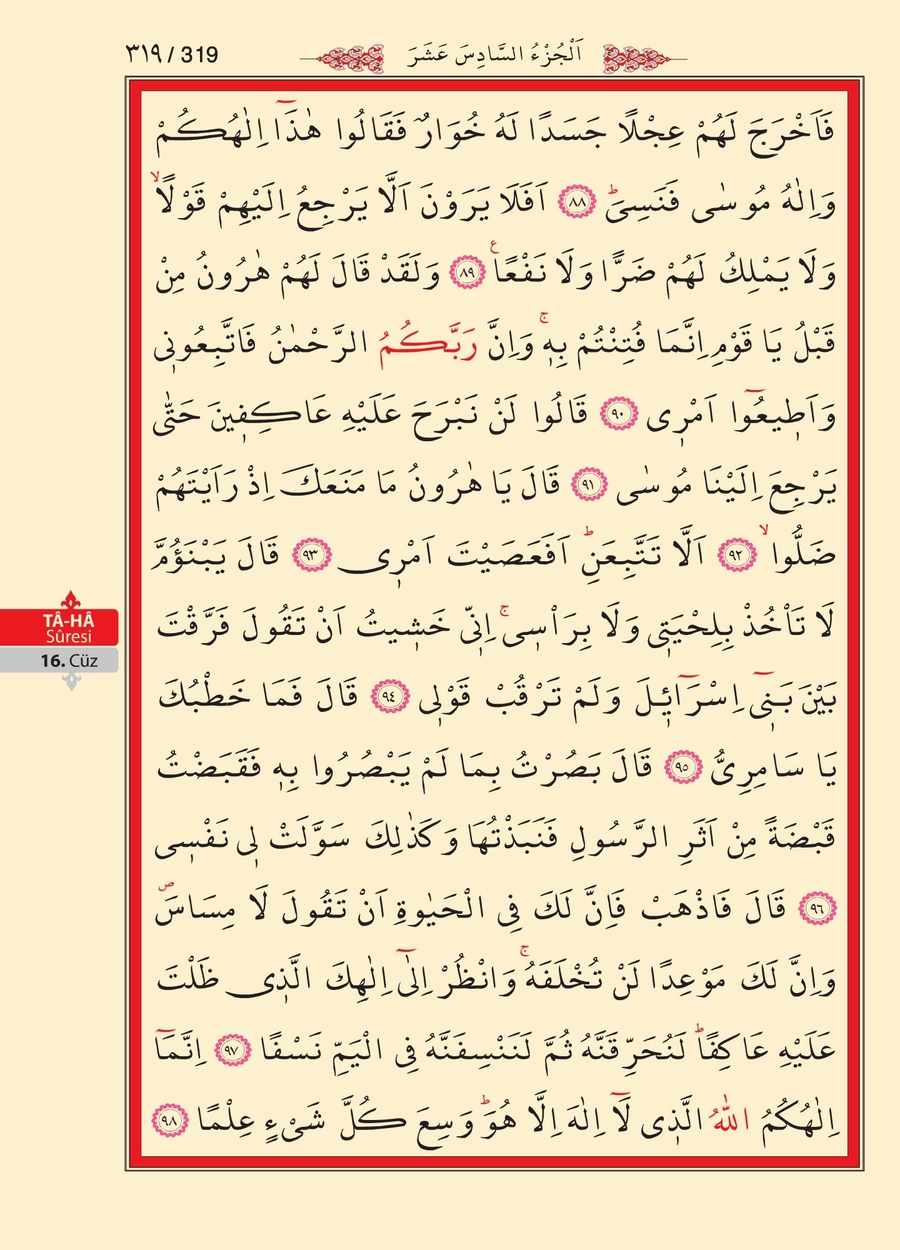 ٣١٩ / 319
اَلْجُزْءُ السَّادِسَ عَشَرَ
فَاَخْرَجَ لَهُمْ عِجْلًا جَسَدًا لَهُ خُوَارٌ فَقَالُوا هٰذَٓا اِلٰهُكُمْ
وَاِلٰهُ مُوسٰى فَنَسِيَۜ ﴿٨٨﴾ اَفَلَا يَرَوْنَ اَلَّا يَرْجِعُ اِلَيْهِمْ قَوْلًاۙ
وَلَا يَمْلِكُ لَهُمْ ضَرًّا وَلَا نَفْعًا۟ ﴿٨٩﴾ وَلَقَدْ قَالَ لَهُمْ هٰرُونُ مِنْ
قَبْلُ يَا قَوْمِ اِنَّمَا فُتِنْتُمْ بِه۪ۚ وَاِنَّ رَبَّكُمُ الرَّحْمٰنُ فَاتَّبِعُون۪ى
وَاَط۪يعُٓوا اَمْر۪ى ﴿٩٠﴾ قَالُوا لَنْ نَبْرَحَ عَلَيْهِ عَاكِف۪ينَ حَتّٰى
يَرْجِعَ اِلَيْنَا مُوسٰى ﴿٩١﴾ قَالَ يَا هٰرُونُ مَا مَنَعَكَ اِذْ رَاَيْتَهُمْ
ضَلُّواۙ ﴿٩٢﴾ اَلَّا تَتَّبِعَنِۜ اَفَعَصَيْتَ اَمْر۪ى ﴿٩٣﴾ قَالَ يَبْنَؤُمَّ
لَا تَاْخُذْ بِلِحْيَت۪ى وَلَا بِرَاْس۪ىۚ اِنّ۪ى خَش۪يتُ اَنْ تَقُولَ فَرَّقْتَ
بَيْنَ بَن۪ٓى اِسْرَٓائ۪لَ وَلَمْ تَرْقُبْ قَوْل۪ى ﴿٩٤﴾ قَالَ فَمَا خَطْبُكَ
يَا سَامِرِىُّ ﴿٩٥﴾ قَالَ بَصُرْتُ بِمَا لَمْ يَبْصُرُوا بِه۪ فَقَبَضْتُ
قَبْضَةً مِنْ اَثَرِ الرَّسُولِ فَنَبَذْتُهَا وَكَذٰلِكَ سَوَّلَتْ ل۪ى نَفْس۪ى
﴿٩٦﴾ قَالَ فَاذْهَبْ فَاِنَّ لَكَ فِى الْحَيٰوةِ اَنْ تَقُولَ لَا مِسَاسَۖ
وَاِنَّ لَكَ مَوْعِدًا لَنْ تُخْلَفَهُۚ وَانْظُرْ اِلٰٓى اِلٰهِكَ الَّذ۪ى ظَلْتَ
عَلَيْهِ عَاكِفًاۜ لَنُحَرِّقَنَّهُ ثُمَّ لَنَنْسِفَنَّهُ فِى الْيَمِّ نَسْفًا ﴿٩٧﴾ اِنَّمَٓا
اِلٰهُكُمُ اللّٰهُ الَّذ۪ى لَٓا اِلٰهَ اِلَّا هُوَۜ وَسِعَ كُلَّ شَىْءٍ عِلْمًا ﴿٩٨﴾
TÂ-HÂ
Sûresi
16. Cüz